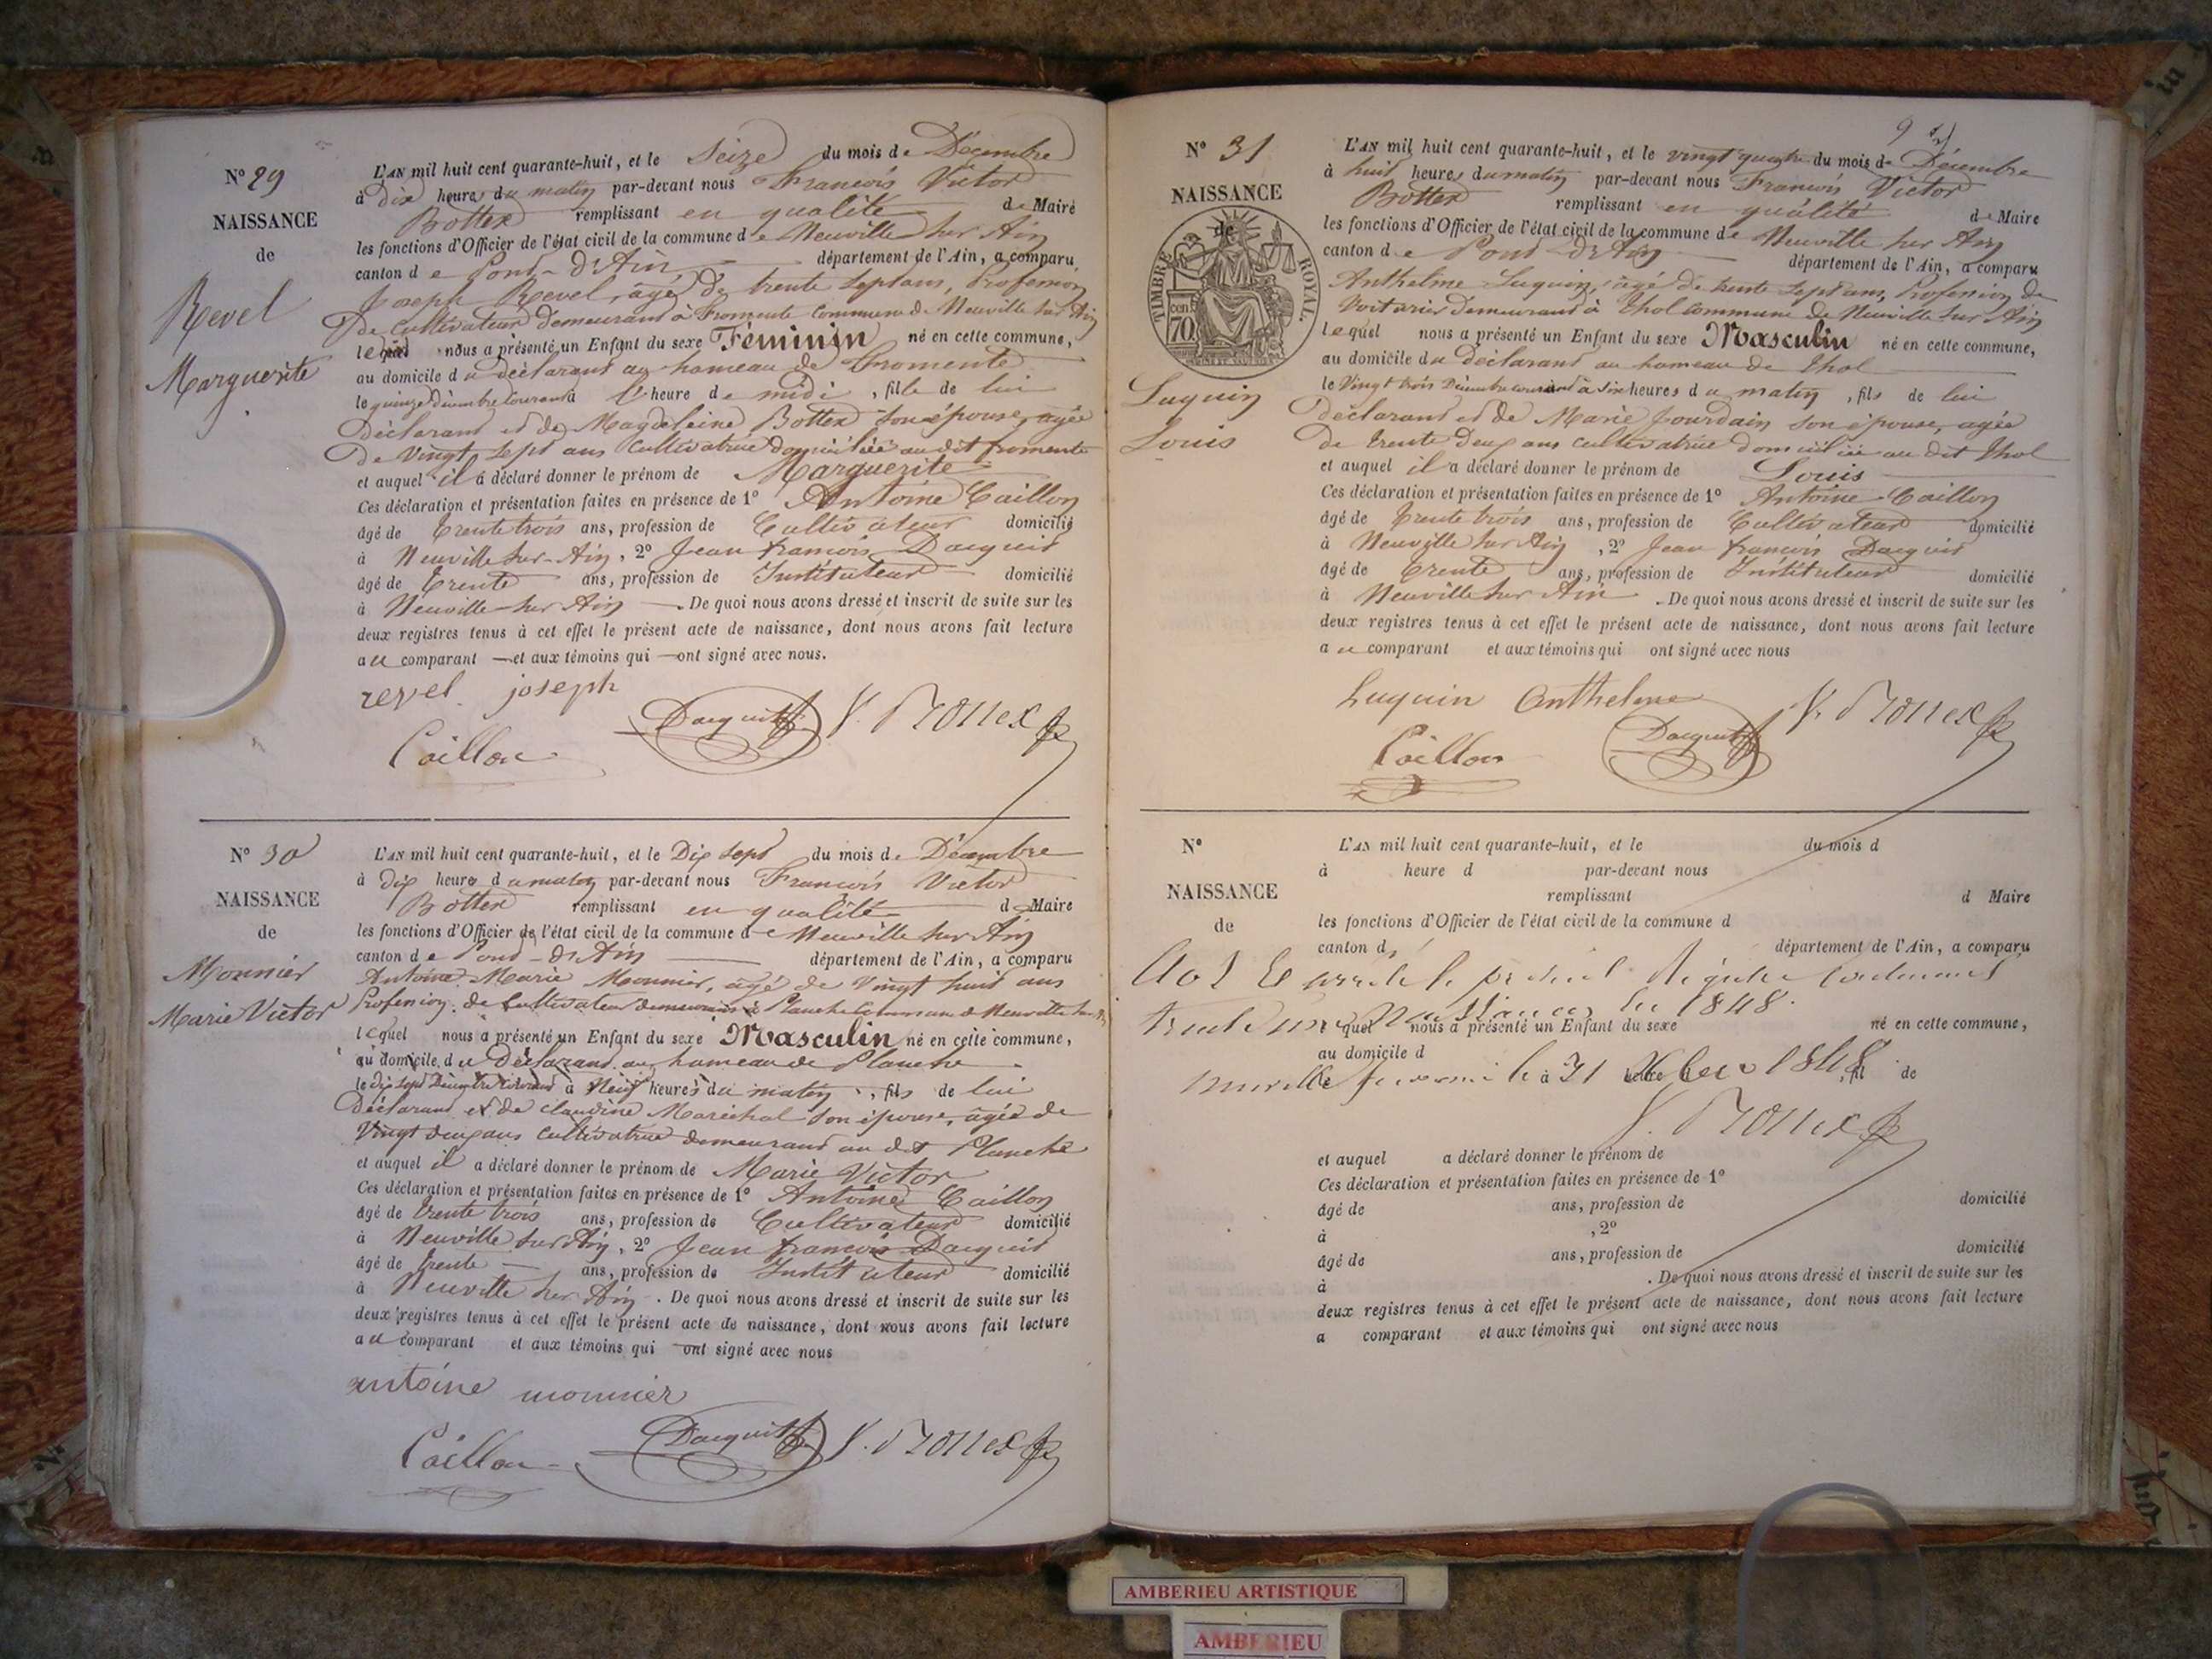 N° 29
NAISSANCE
de
Revel
Marguerite
L'AN mil huit cent quarante-huit, et le Seize du mois de Décembre
à dix heures du matin par-devant nous François Victor
Bottex remplissant en qualité de Maire
les fonctions d'Officier de l'état civil de la commune de Neuville sur Ain
canton de Pont-d'Ain département de l'Ain, a comparu
Joseph Revel, âgé de trente sept ans, Profession
de Cultivateur demeurant à Fromente Commune de Neuville sur Ain
lequel nous a présenté un Enfant du sexe Féminin né en cette commune,
au domicile du déclarant au hameau de Fromente
le quinze Décembre Courant à l'heure de midi, fille de lui
Déclarant et de Magdeleine Bottex son épouse, agée
De Vingt sept ans Cultivatrice domiciliée au dit fromente
et auquel il a déclaré donner le prénom de Marguerite
Ces déclaration et présentation faites en présence de 1° Antoine Caillon
âgé de trente trois ans, profession de Cultivateur domicilié
à Neuville sur-Ain, 2° Jean françois Dacquit
âgé de trente ans, profession de Instituteur domicilié
à Neuville-sur Ain. De quoi nous avons dressé et inscrit de suite sur les
deux registres tenus à cet effet le présent acte de naissance, dont nous avons fait lecture
au comparant et aux témoins qui ont signé avec nous.
revel joseph
Dacquit V. Bottex
Caillon
N° 30
NAISSANCE
de
Monnier
Marie Victor
L'AN mil huit cent quarante-huit, et le Dix sept du mois de Décembre
à dix heures du matin par-devant nous François Victor
Bottex remplissant en qualité de Maire
les fonctions d'Officier de l'état civil de la commune de Neuville sur Ain
canton de Pont-d'Ain département de l'Ain, a comparu
Antoine Marie Monnier, agé de Vingt huit ans
Profession de Cultivateur demeurant à Planche Commune de Neuville sur
lequel nous a présenté un Enfant du sexe Masculin né en cette commune,
au domicile du Déclarant au hameau de Planche
le dix sept Décembre Courant à Neuf heures du matin, fils de lui
Déclarant et de claudine Maréchal son épouse, agée de
Vingt deux ans cultivatrice demeurant au dit Planche
et auquel il a déclaré donner le prénom de Marie Victor
Ces déclaration et présentation faites en présence de 1° Antoine Caillon
âgé de trente trois ans, profession de Cultivateur domicilié
à Neuville sur Ain, 2° Jean françois Dacquit
âgé de trente ans, profession de Instituteur domicilié
à Neuville sur Ain. De quoi nous avons dressé et inscrit de suite sur les
deux registres tenus à cet effet le présent acte de naissance, dont nous avons fait lecture
au comparant et aux témoins qui ont signé avec nous
antoine monnier
Caillon Dacquit V. Bottex
9
N° 31
NAISSANCE
de
TIMBRE ROYAL
70 cent
Luquin
Louis
L'AN mil huit cent quarante-huit, et le vingt quatre du mois de Décembre
à huit heures du matin par-devant nous François Victor
Bottex remplissant en qualité de Maire
les fonctions d'Officier de l'état civil de la commune de Neuville sur Ain
canton de Pont-d'Ain département de l'Ain, a comparu
Anthelme Luquin, agé de trente sept ans, Profession de
Voiturier demeurant à Thol commune de Neuville sur Ain
lequel nous a présenté un Enfant du sexe Masculin né en cette commune,
au domicile du déclarant au hameau de Thol
le Vingt trois Décembre courant à six heures du matin, fils de lui
Déclarant et de Marie Jourdain son épouse, agée
De trente Deux ans cultivatrice domiciliée au dit Thol
et auquel il a déclaré donner le prénom de Louis
Ces déclaration et présentation faites en présence de 1° Antoine Caillon
âgé de trente trois ans, profession de Cultivateur domicilié
à Neuville sur Ain, 2° Jean françois Dacquit
âgé de trente ans, profession de Instituteur domicilié
à Neuville sur Ain. De quoi nous avons dressé et inscrit de suite sur les
deux registres tenus à cet effet le présent acte de naissance, dont nous avons fait lecture
au comparant et aux témoins qui ont signé avec nous
Luquin Anthelme V. Bottex
Caillon Dacquit
N°
NAISSANCE
de
L'AN mil huit cent quarante-huit, et le du mois d
à heure d par-devant nous
remplissant d Maire
les fonctions d'Officier de l'état civil de la commune d
canton d département de l'Ain, a comparu
Clos & arrêté le présent Régistre contenant
trente une Naissances de 1848.
quel nous a présenté un Enfant du sexe né en cette commune,
au domicile d
le à heure fil de
31 1848
V. Bottex
et auquel a déclaré donner le prénom de
Ces déclaration et présentation faites en présence de 1°
âgé de ans, profession de domicilié
à ,2°
âgé de ans, profession de domicilié
à . De quoi nous avons dressé et inscrit de suite sur les
deux registres tenus à cet effet le présent acte de naissance, dont nous avons fait lecture
a comparant et aux témoins qui ont signé avec nous
AMBERIEU ARTISTIQUE
AMBERIEU